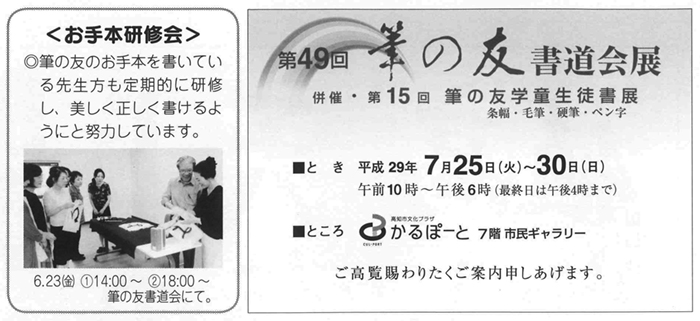 <お手本研修会>
◎筆の友のお手本を書いてい
る先生方も定期的に研修
し、美しく正しく書けるよ
うにと努力しています。
6.23㈮ ①14:00〜 ②18:00〜
筆の友書道会にて。
第49回 筆の友 書道会展
併催・第15回 筆の友学童生徒書展
条幅・毛筆・硬筆・ペン字
■とき 平成29年 7月25日(火)〜30日(日)
午前10時〜午後6時(最終日は午後4時まで)
■ところ 高知市文化プラザ かるぽーと 7階 市民ギャラリー
CUL-PORT
ご高覧賜わりたくご案内申しあげます。